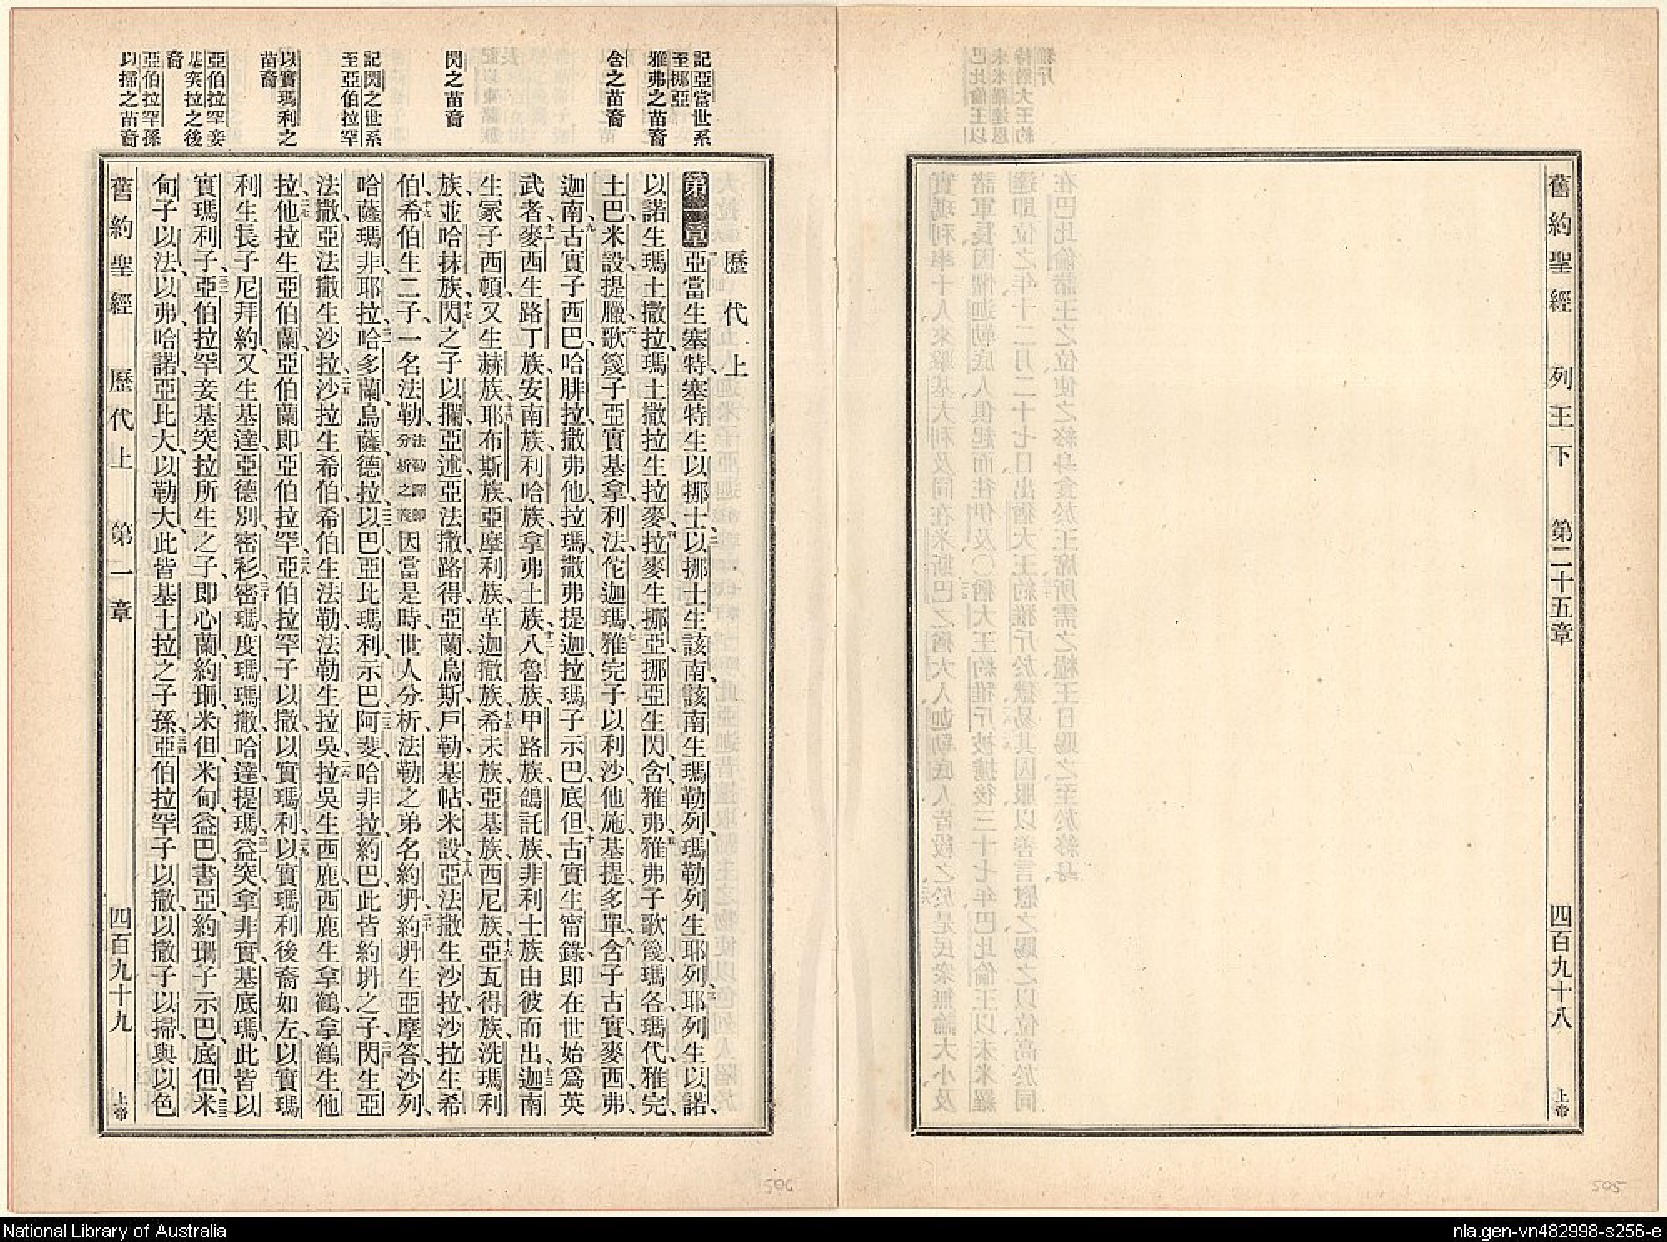 舊約聖經 列王下 第二十五章 四百九十八 上帝
記亞當世系
至挪亞
雅弗之苗裔
含之苗裔
閃之苗裔
記閃之世系
至亞伯拉罕
以實瑪利之
苗裔
亞伯拉罕妾
基突拉之後
裔
亞伯拉罕孫
以掃之苗裔
歷代上
第一章亞當生塞特、塞特生以挪士、以挪士生該南、該南生瑪勒列、瑪勒列生耶列、耶列生以諾、
以諾生瑪土撒拉、瑪土撒拉生拉麥、拉麥生挪亞、挪亞生閃含雅弗、雅弗子歌篾瑪各、瑪代雅完
土巴米設提臘、歌篾子亞實基拿利法佗迦瑪、雅完子以利沙他施基提多單、含子古實麥西弗
迦南、古實子西巴哈腓拉撒弗他拉瑪撒弗提迦、拉瑪子示巴底但、古實生甯錄、即在世始爲英
武者、麥西生路丁族安南族利哈族拿弗土族八魯族甲路族鴿託族、非利士族由彼而出、迦南
生冢子西頓、又生赫族、耶布斯族亞摩利族革迦撒族希未族亞基族西尼族亞瓦得族洗瑪利
族、並哈抹族、閃之子以攔亞述亞法撒路得亞蘭烏斯戶勒基帖米設、亞法撒生沙拉、沙拉生希
伯、希伯生二子、一名法勒、法勒譯即分析之義因當是時世人分析、法勒之弟名約坍、約坍生亞摩答沙列
哈薩瑪非耶拉哈多蘭烏薩德拉以巴亞比瑪利示巴阿斐哈非拉約巴、此皆約坍之子、閃生亞
法撒、亞法撒生沙拉、沙拉生希伯、希伯生法勒、法勒生拉吳、拉吳生西鹿、西鹿生拿鶴、拿鶴生他
拉、他拉生亞伯蘭、亞伯蘭即亞伯拉罕、亞伯拉罕子以撒以實瑪利、以實瑪利後裔如左、以實瑪
利生長子尼拜約、又生基達亞德別密衫密瑪度瑪瑪撒哈達提瑪益突拿非實基底瑪、此皆以
實瑪利子、亞伯拉罕妾基突拉所生之子、即心蘭約珊米但米甸益巴書亞、約珊子示巴底但、米
甸子以法以弗哈諾亞比大以勒大、此皆基土拉之子孫、亞伯拉罕子以撒、以撒子以掃與以色
舊約聖經 歷代上 第一章 四百九十九 上帝
506
505
National Library of Australia
nla.gen-vn482998-s256-e